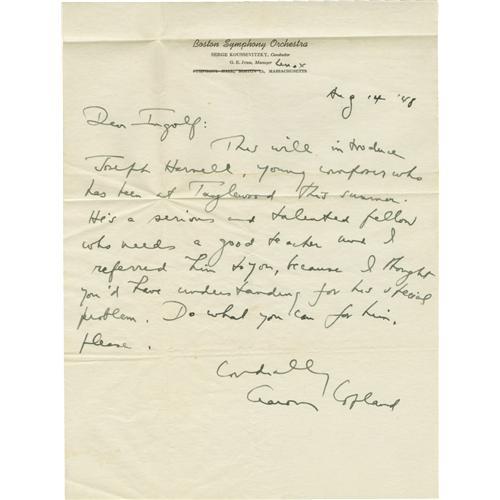 Boston Symphony Orchestra
SERGE KOUSSEVITZKY, Conductor
G. E. Judd, Manager Lenox
SYMPHONY HALL, BOSTON 15, MASSACHUSETTS
Aug 14 '48
Dear Ingolf:
This will introduce
Joseph Harnell, young composer who
has been at Tanglewood this summer.
He's a serious and talented fellow
who needs a good teacher and I
referred him to you, because I thought
you'd have understanding for his special
problem. Do what you can for him,
please.
Cordially
Aaron Copland